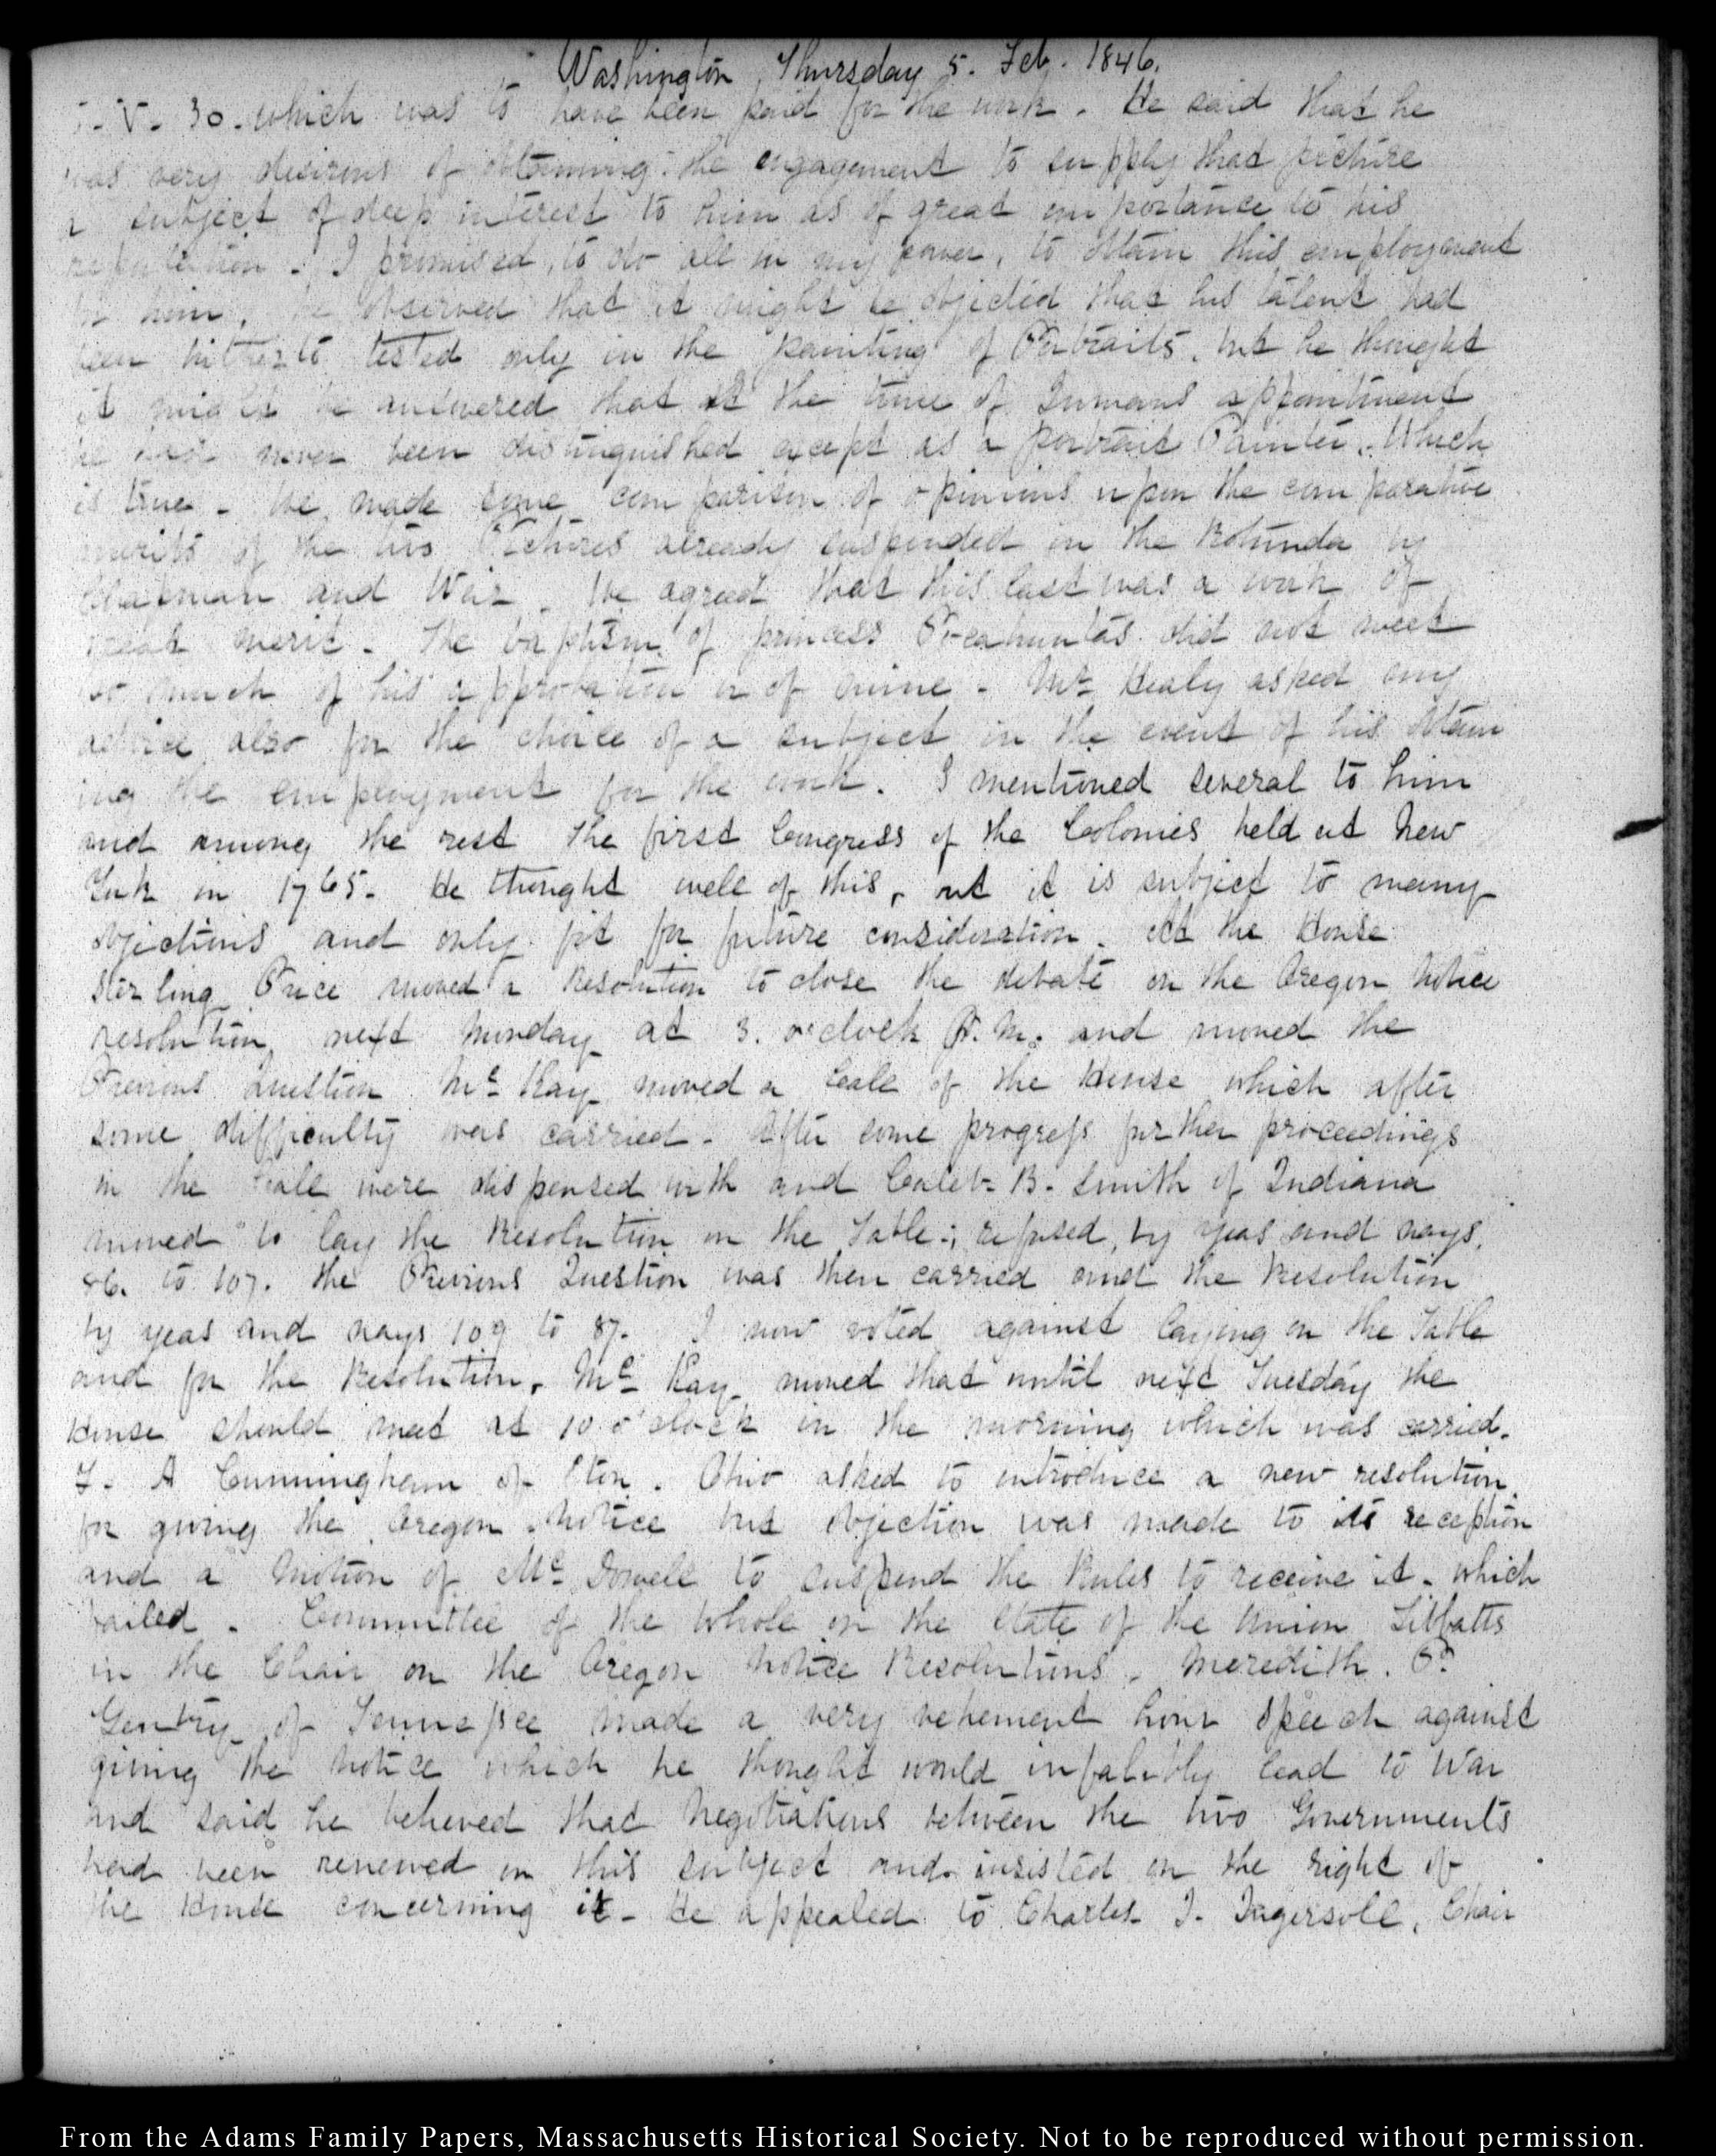 Washington, Thursday 5. Feb. 1846.
V. 30. which was to have been paid for the work. He said that he
was very desirous of obtaining the engagement to supply that picture
a subject of deep interest to him as of great importance to his
reputation. I promised, to do all in my power, to obtain this employment
for him. He observed that it might be objected that his talent had
been hitherto tested only in the painting of Portraits, but he thought
it might be answered that at the time of Inmans appointment
he had never been distinguished except as a portrait Painter. Which
is true. We made some comparison of opinions upon the comparative
merits of the two Pictures already suspended in the Rotunda by
Chapman and Weir. We agreed that this last was a work of
great merit. The baptism of princess Pocahuntas did not meet
so much of his approbation or of mine. Mr. Healy asked my
advice also for the choice of a subject in the event of his obtain
ing the employment for the work. I mentioned several to him
and among the rest the first Congress of the Colonies held at New
York in 1765. He thought well of this, but it is subject to many
objections and only fit for future consideration. At the House
Sterling Price moved a Resolution to close the debate on the Oregon Notice
resolution next Monday at 3. o'clock P.M. and moved the
Previous Question Mc. Kay moved a Call of the House which after
some difficulty was carried. After some progress further proceedings
in the Call were dispensed with and Caleb B. Smith of Indiana
moved to lay the Resolution on the Table; refused, by yeas and nays,
86. to 107. the Previous Question was then carried and the Resolution
by yeas and nays 109 to 87. I now voted against laying on the Table
and for the Resolution. Mc. Kay moved that until next Tuesday the
House should meet at 10 o'clock in the morning which was carried.
F. A Cunningham of Eton. Ohio asked to introduce a new resolution
for giving the Oregon Notice but objection was made to its reception
and a Motion of Mc. Dowell to suspend the Rules to receive it. which
failed. Committee of the Whole on the State of the Union Tibbatts
in the Chair on the Oregon Notice Resolutions. Meredith. P.
Gentry of Tennessee made a very vehement hour speech against
giving the Notice which he thought would infalibly lead to War
and said he believed that Negotiations between the two Governments
had been renewed on this subject and insisted on the right of
the House concerning it. He appealed to Charles J. Ingersoll, Chair
From the Adams Family Papers, Massachusetts Historical Society. Not to be reproduced without permission.